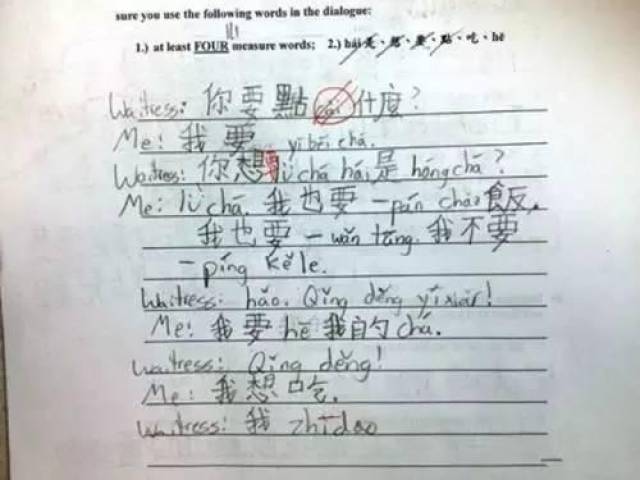 sure you use the following words in the dialogue:
1.) at least FOUR measure words; 2.) hái 是、想、要、點、吃、hē
Waitress: 你要點 cài 什麼?
Me: 我要 yì bēi chá.
Waitress: 你想要 lǜ chá hái 是 hóng chá?
Me: lǜ chá. 我也要一 pán chǎo 飯,
我也要一 wǎn tāng. 我不要
一 píng kělè.
Waitress: hǎo. Qǐng děng yíxiàr!
Me: 我要 hē 我的 chá.
Waitress: Qǐng děng!
Me: 我想吃.
Waitress: 我 zhīdao